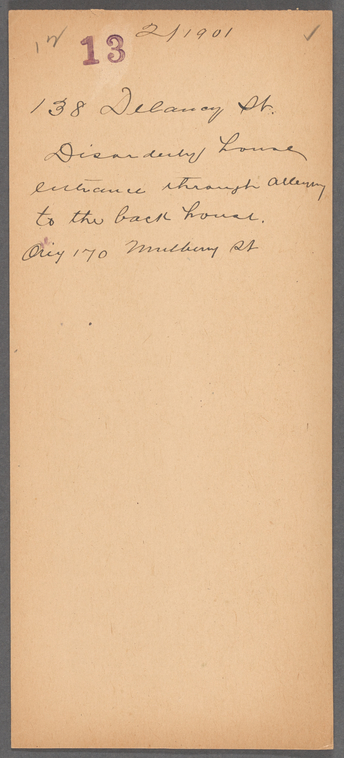 12 13 2/1901 ✓
138 Delancy St.
Disorderly house
entrance through alleyway
to the back house.
Orig 170 Mulberry St